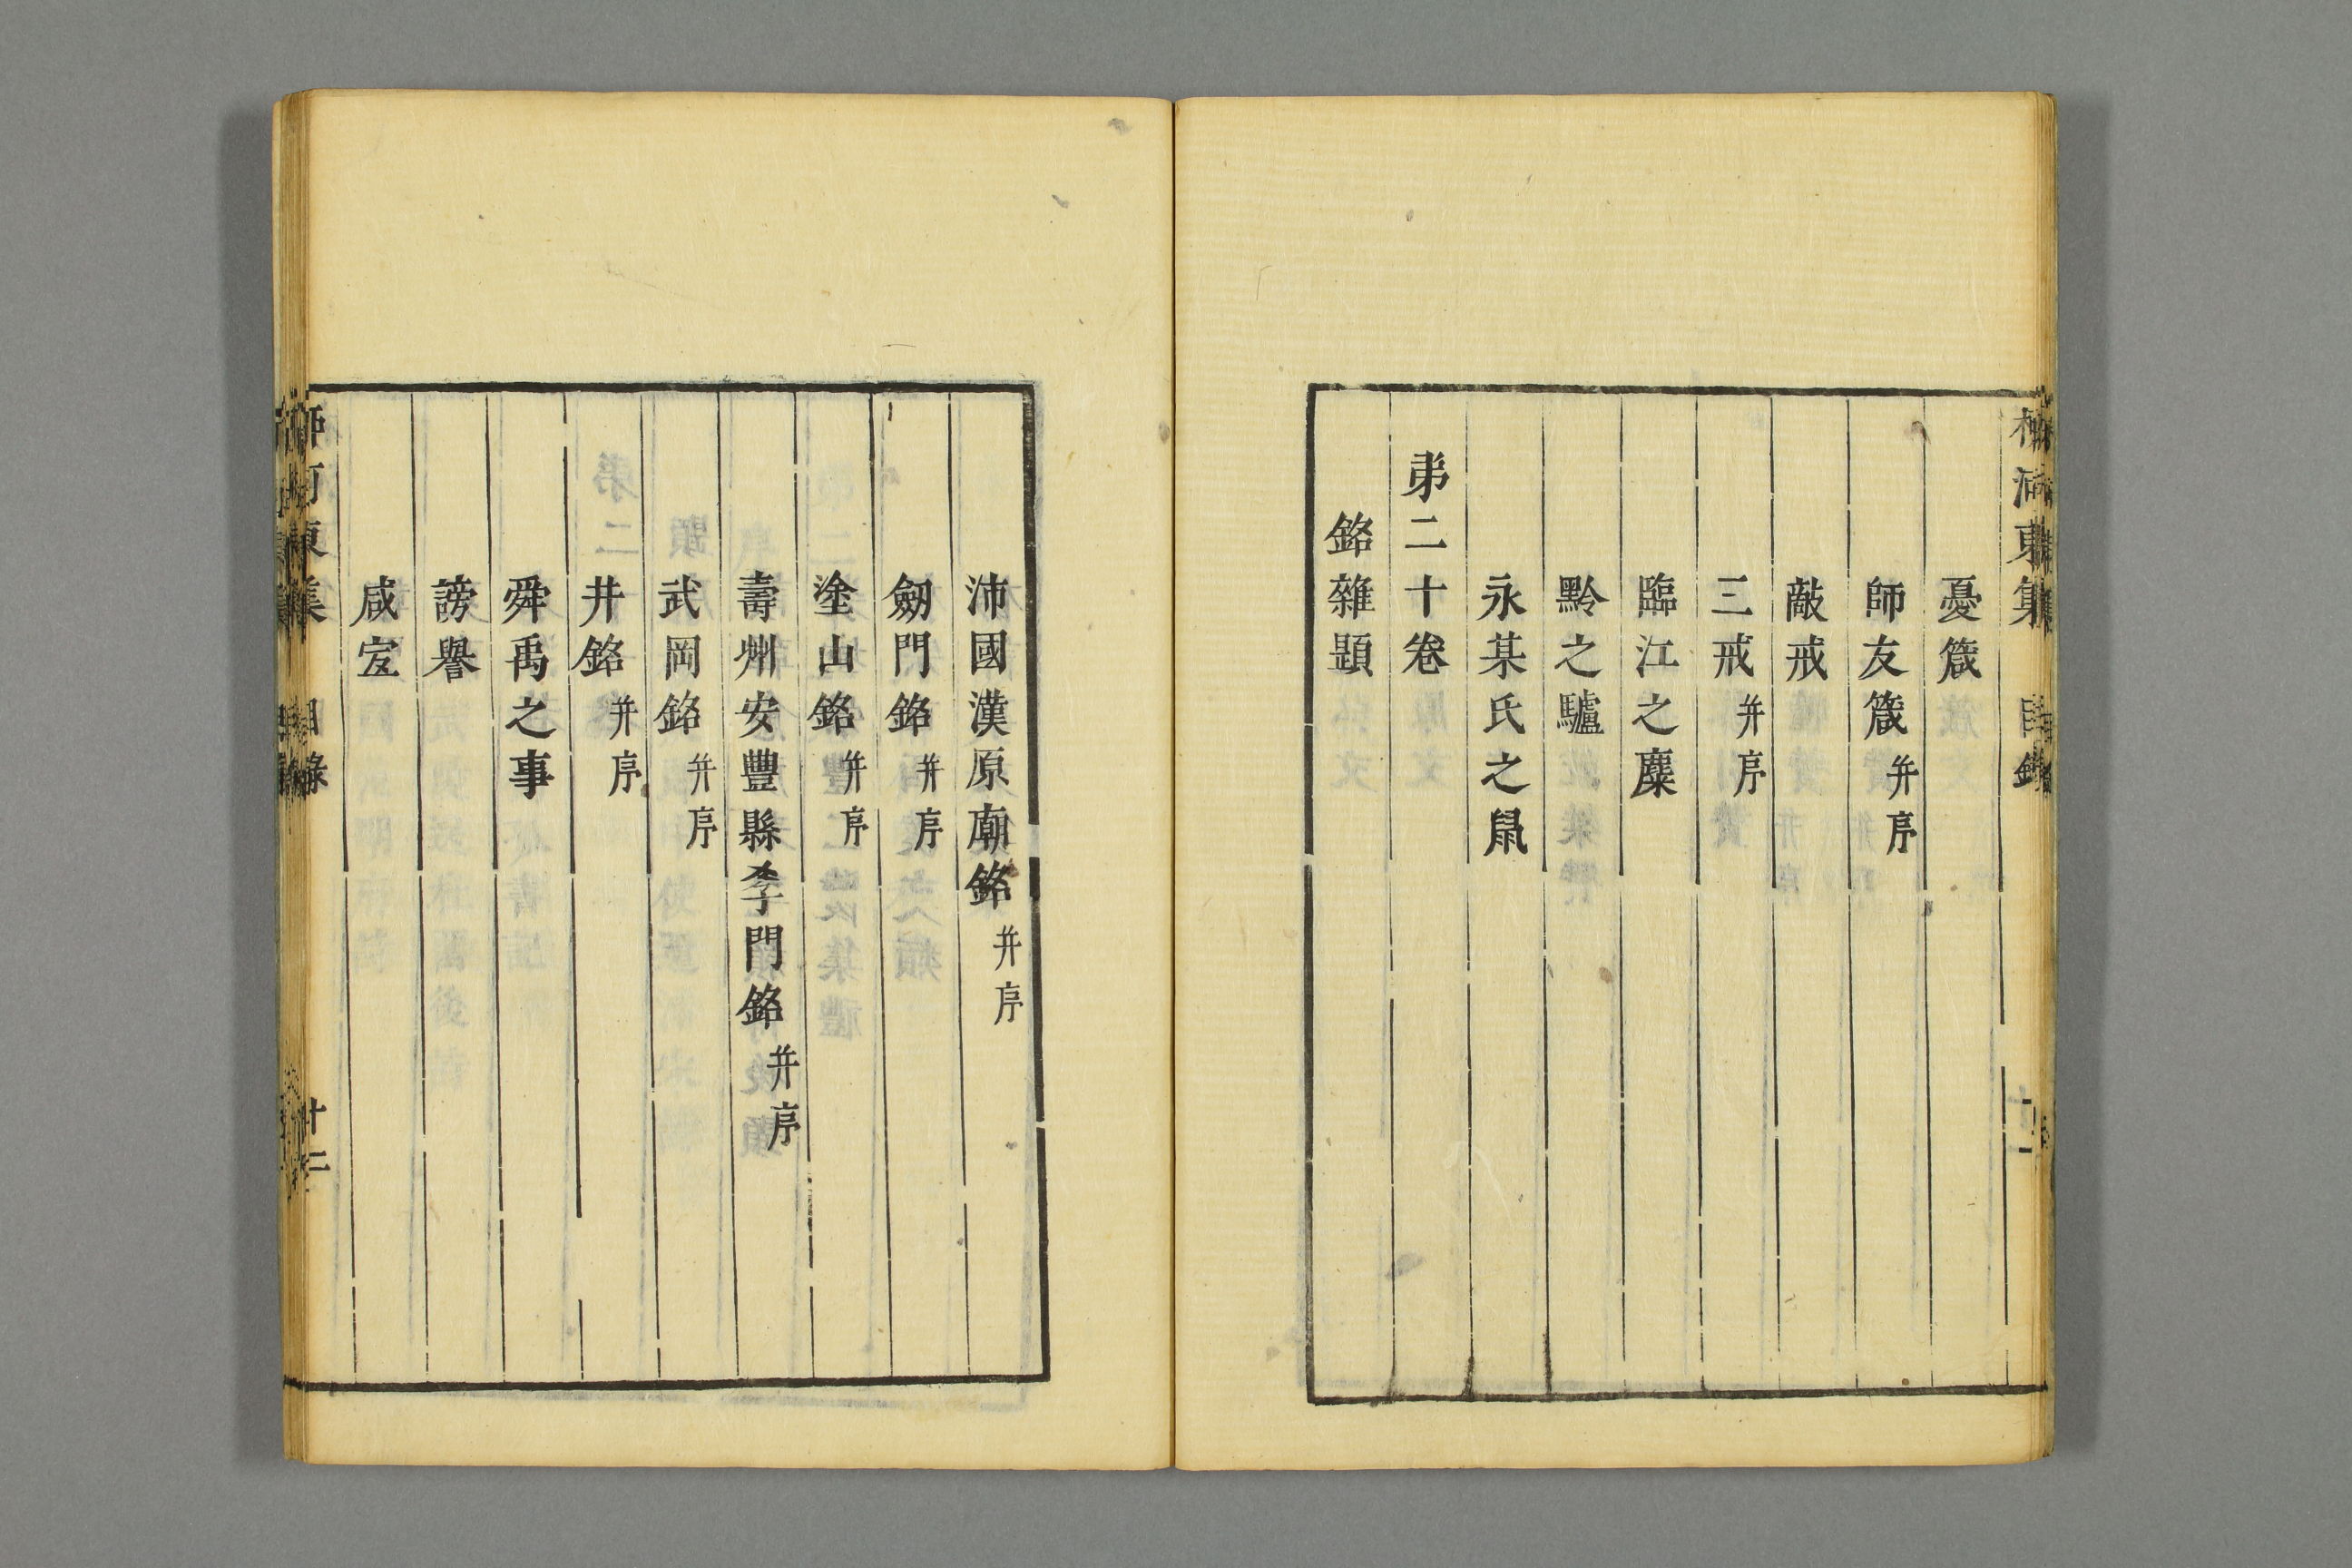 柳河東集 目錄
憂箴
師友箴 并序
敵戒
三戒 并序
臨江之麋
黔之驢
永某氏之鼠
弟二十卷
銘雜題
沛國漢原廟銘 并序
劒門銘 并序
塗山銘 并序
壽州安豐縣李門銘 并序
武岡銘 并序
井銘 并序
舜禹之事
謗譽
咸宐
柳河東集 目錄 廿二